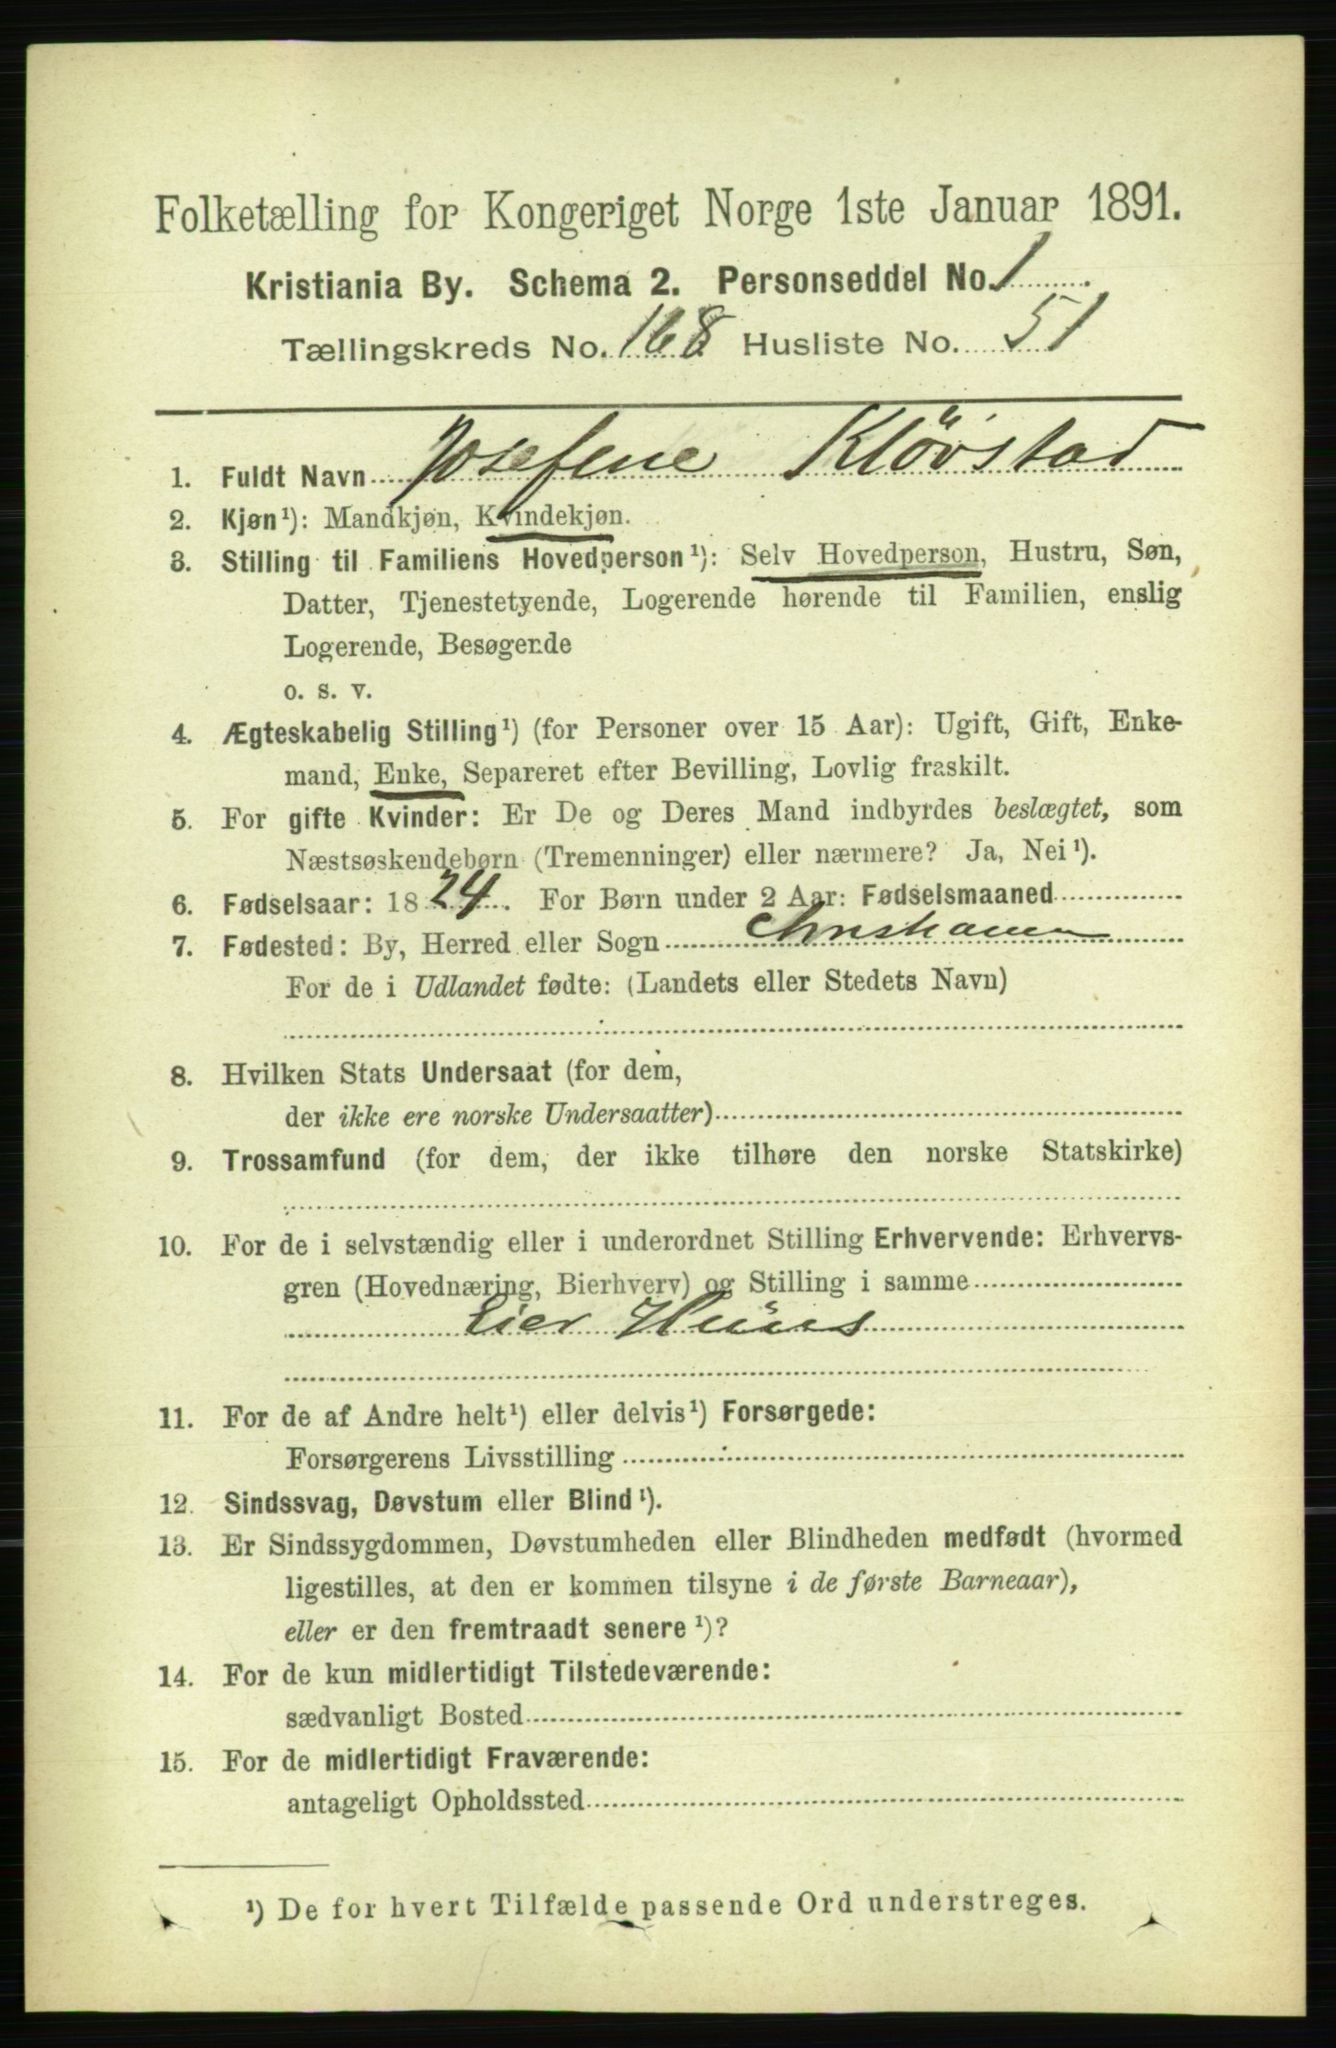 Folketælling for Kongeriget Norge 1ste Januar 1891.
Kristiania By. Schema 2. Personseddel No. 1
Tællingskreds No. 168 Husliste No. 51
1. Fuldt Navn Josefine Kløvstad
2. Kjøn¹): Mandkjøn, Kvindekjøn.
3. Stilling til Familiens Hovedperson¹): Selv Hovedperson, Hustru, Søn,
Datter, Tjenestetyende, Logerende hørende til Familien, enslig
Logerende, Besøgende
o. s. v.
4. Ægteskabelig Stilling¹) (for Personer over 15 Aar): Ugift, Gift, Enke-
mand, Enke, Separeret efter Bevilling, Lovlig fraskilt.
5. For gifte Kvinder: Er De og Deres Mand indbyrdes beslægtet, som
Næstsøskendebørn (Tremenninger) eller nærmere? Ja, Nei¹).
6. Fødselsaar: 1824. For Børn under 2 Aar: Fødselsmaaned
7. Fødested: By, Herred eller Sogn Christiania
For de i Udlandet fødte: (Landets eller Stedets Navn)
8. Hvilken Stats Undersaat (for dem,
der ikke ere norske Undersaatter)
9. Trossamfund (for dem, der ikke tilhøre den norske Statskirke)
10. For de i selvstændig eller i underordnet Stilling Erhvervende: Erhvervs-
gren (Hovednæring, Bierhverv) og Stilling i samme
Eier Huus
11. For de af Andre helt¹) eller delvis¹) Forsørgede:
Forsørgerens Livsstilling
12. Sindssvag, Døvstum eller Blind¹).
13. Er Sindssygdommen, Døvstumheden eller Blindheden medfødt (hvormed
ligestilles, at den er kommen tilsyne i de første Barneaar),
eller er den fremtraadt senere¹)?
14. For de kun midlertidigt Tilstedeværende:
sædvanligt Bosted
15. For de midlertidigt Fraværende:
antageligt Opholdssted
¹) De for hvert Tilfælde passende Ord understreges.